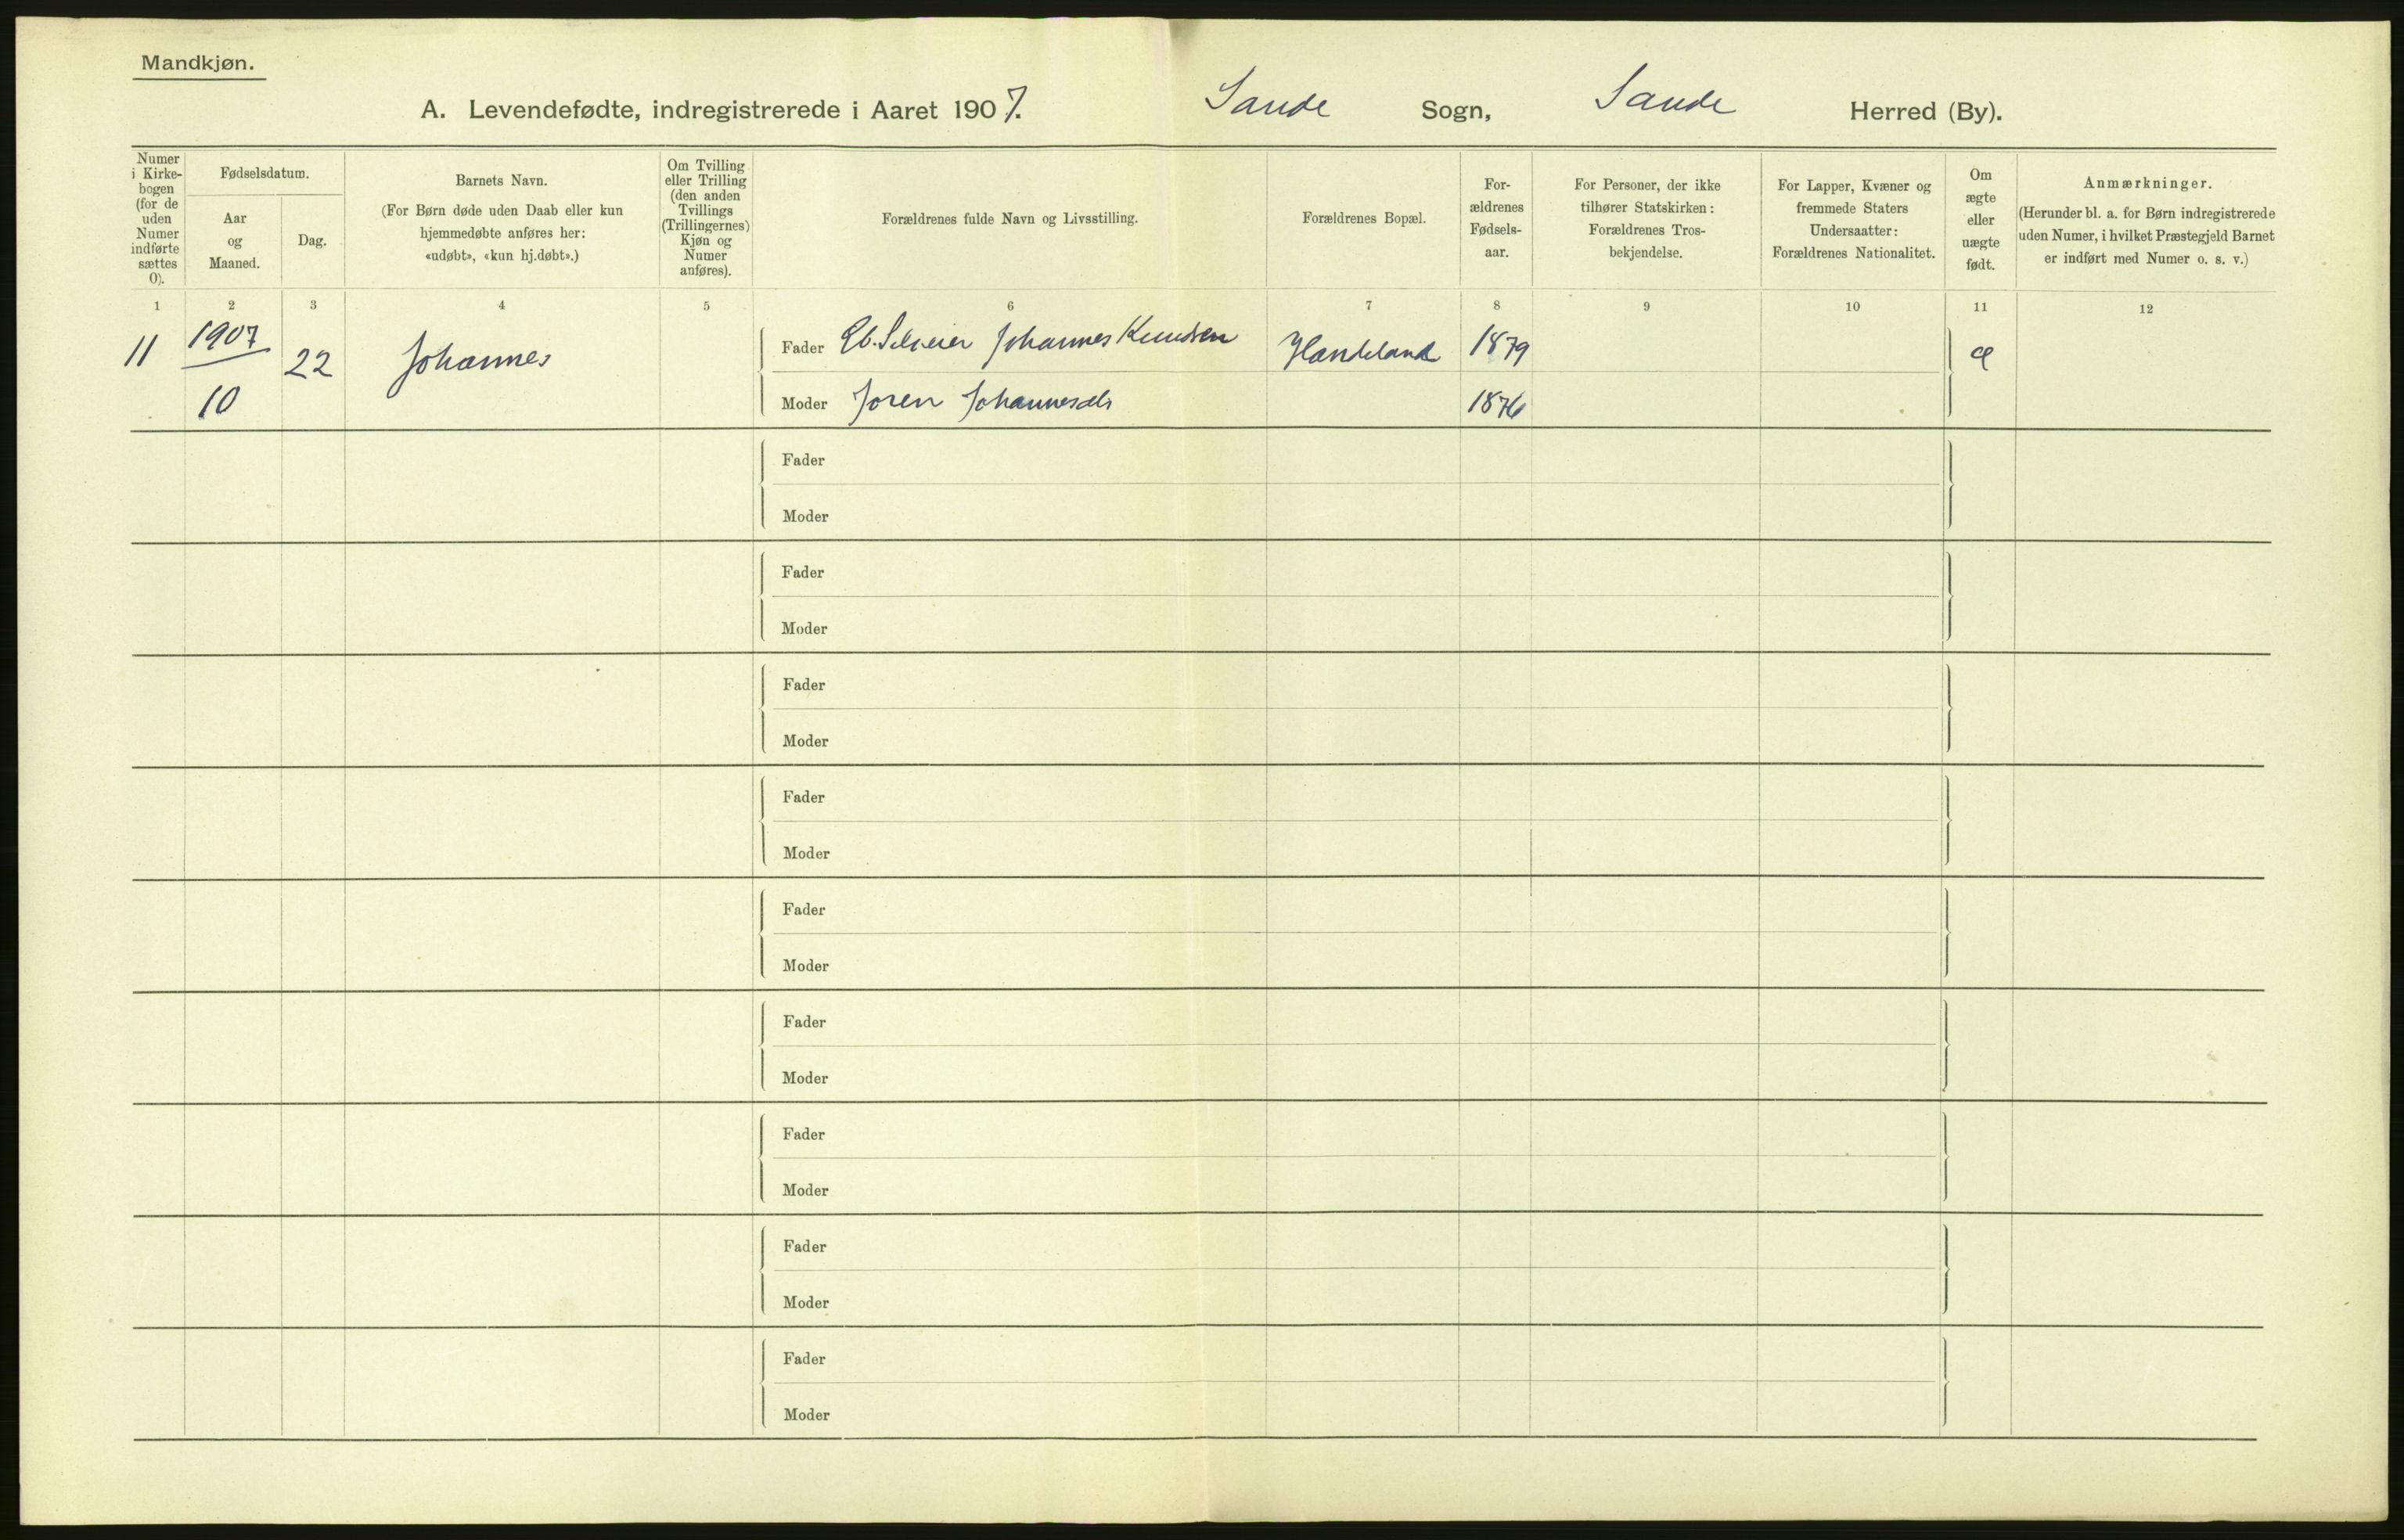 Mandkjøn.
A. Levendefødte, indregistrerede i Aaret 1907. Sande Sogn, Sande Herred (By).
Numer
i Kirke-
bogen
(for de
uden
Numer
indførte
sættes
0).
Fødselsdatum.
Aar
og
Maaned.
Dag.
Barnets Navn.
(For Børn døde uden Daab eller kun
hjemmedøbte anføres her:
«udøbt», «kun hj.døbt».)
Om Tvilling
eller Trilling
(den anden
Tvillings
(Trillingernes)
Kjøn og
Numer
anføres).
Forældrenes fulde Navn og Livsstilling.
Forældrenes Bopæl.
For-
ældrenes
Fødsels-
aar.
For Personer, der ikke
tilhører Statskirken:
Forældrenes Tros-
bekjendelse.
For Lapper, Kvæner og
fremmede Staters
Undersaatter:
Forældrenes Nationalitet.
Om
ægte
eller
uægte
født.
Anmærkninger.
(Herunder bl. a. for Børn indregistrerede
uden Numer, i hvilket Præstegjeld Barnet
er indført med Numer o. s. v.)
1 2 3 4 5 6 7 8 9 10 11 12
11 1907 22 Johannes Fader Johannes Knudsen 1879
10 Moder Joren Johannesdtr 1876
Fader
Moder
Fader
Moder
Fader
Moder
Fader
Moder
Fader
Moder
Fader
Moder
Fader
Moder
Fader
Moder
Fader
Moder